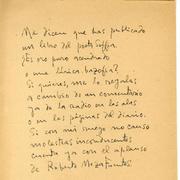 Me dicen que has publicado
un libro del poeta Goffin.
¿Es oro puro acendrado
o una lírica bazofia?
Si quieres, me lo regalas
a cambio de un comentario
ya de la radio en las alas
o en las páginas del diario.
Si con mi ruego no causo
molestias inconducentes
cuenta ya con el aplauso
de Roberto Meza Fuentes